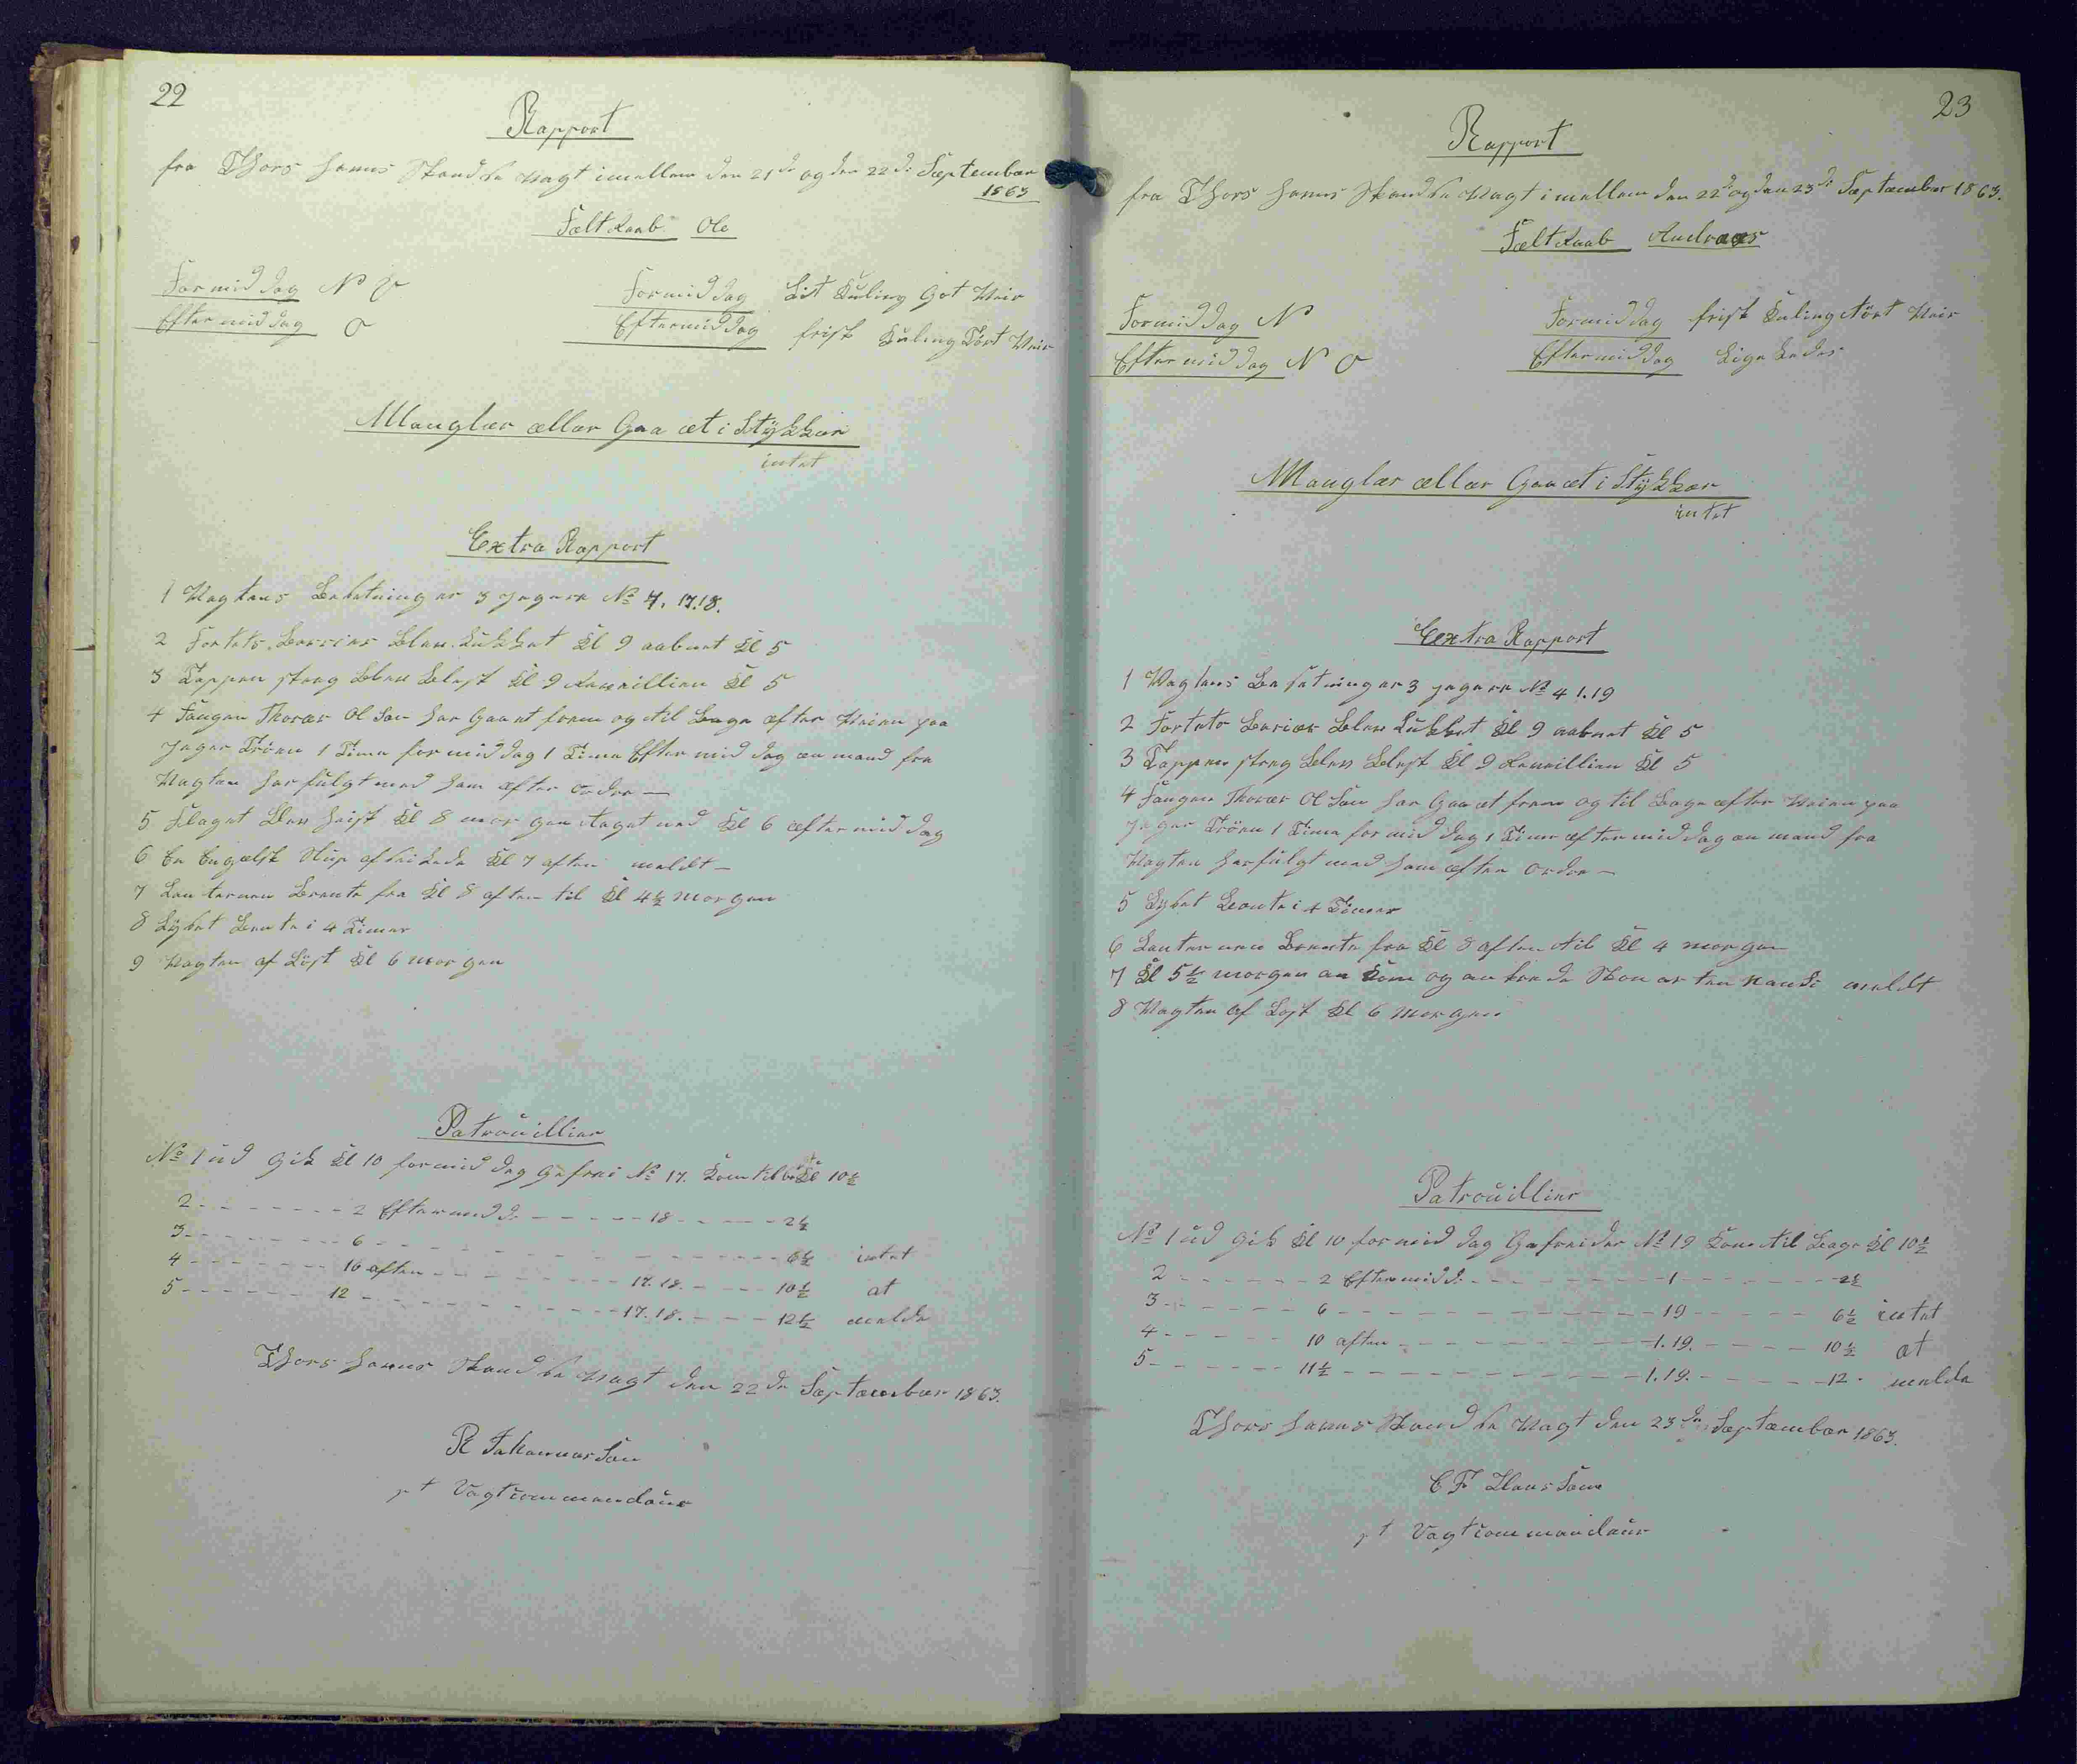 22
Rapport
fra Thors havns Skandse Vagt imellem den 21de og den 22de September
1863
Feltraab Ole
Formiddag N O Formiddag List Kuling Got Veir
Eftermiddag O Eftermiddag frisk Kuling Tört Veir
Mangler eller Gaaet i Stÿkker
intet
Extra Rapport
1 Vagtens Besetning er 3 Jegere No 7. 17. 18.
2 Fortets Barrier blev Lukket Kl 9 aabnet Kl 5
3 Tappenstreg blev blest Kl 9 Reveillien Kl 5
4 Fangen Thorer Olson har Gaaet frem og til Bage efter Veien paa
Jeger Tröen 1 Time formiddag 1 Time Eftermiddag en mand fra
Vagten har fulgt med ham efter ordre
5 Flaget blev heist Kl 8 morgen taget ned Kl 6 eftermiddag
6 En Engelsk Slup afseilede Kl 7 aften meldt
7 Lanternen Brente fra Kl 8 aften til Kl 4½ Morgen
8 Lyset Brente i 4 Timer
9 Vagten af Löst Kl 6 morgen
Patrouillier
No 1 ud Gik Kl 10 formiddag Gefrei No 17. Kom tilb Kl 10½
2 - - - 2 Eftermidd. - - - 18 - - - 2½
3 - - - 6 - - - 6½ intet
4 - - - 10 aften - - - 17. 18. - - - 10½ at
5 - - - 12 - - - 17. 18. - - - 12½ melde
Thors havns Skandse Vagt den 22de September 1863.
R Jakannerson
pt Vagtcommandeur
23
Rapport
fra Thors havns Skandse Vagt imellem den 22de og den 23de September 1863.
Feltraab Andreas
Formiddag N Formiddag frisk Kuling tört Veir
Eftermiddag N O Eftermiddag Ligeledes
Mangler eller Gaaet i Stÿkker
intet
Extra Rapport
1 Vagtens Besetning er 3 jegere No 4 1. 19
2 Fortets Barier blev Lukket Kl 9 aabnet Kl 5
3 Tappenstreg blev blest Kl 9 Reveillien Kl 5
4 Fangen Thorer Olson har Gaaet frem og til Bage efter Veien paa
Jeger Tröen 1 Time formiddag 1 Time eftermiddag en mand fra
Vagten har fulgt med ham efter ordre
5 Lyset Brente i 4 Timer
6 Lanternen Brente fra Kl 8 aften til Kl 4 morgen
7 Kl 5½ morgen an Kom og ankrede Skonnerten meldt
8 Vagten af Löst Kl 6 Morgen
Patrouillier
No 1 ud Gik Kl 10 formiddag Gefreider No 19 Kom til Bage Kl 10½
2 - - - 2 Eftermidd. - - - 1 - - - 2½
3 - - - 6 - - - 19 - - - 6½ intet
4 - - - 10 aften - - - 1. 19. - - - 10½ at
5 - - - 11½ - - - 1. 19. - - - 12 melde
Thors havns Skandse Vagt den 23de September 1863.
C F Hansson
pt Vagtcommandeur